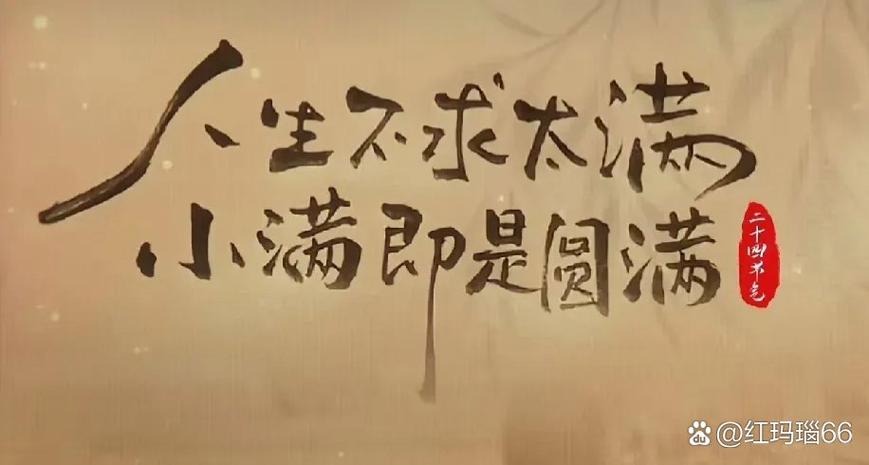 人生不求太满
小满即是圆满
二十四节气
@红玛瑙66